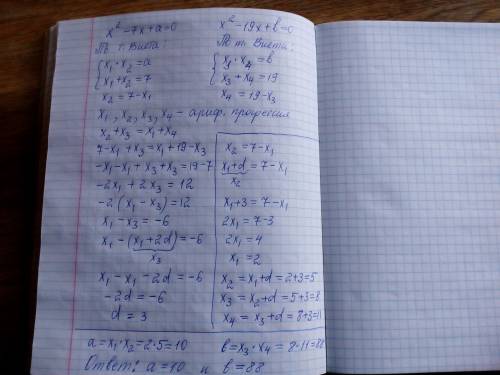 x²-7x+a=0
По т. Виета:
{x₁·x₂=a
x₁+x₂=7
x₂=7-x₁
x²-19x+b=0
По т. Виета:
{x₃·x₄=b
x₃+x₄=19
x₄=19-x₃
x₁, x₂, x₃, x₄ - ариф. прогрессия
x₂+x₃=x₁+x₄
7-x₁+x₃=x₁+19-x₃
-x₁-x₁+x₃+x₃=19-7
-2x₁+2x₃=12
-2(x₁-x₃)=12
x₁-x₃=-6
x₁-(x₁+2d)=-6
x₃
x₁-x₁-2d=-6
-2d=-6
d=3
x₂=7-x₁
x₁+d=7-x₁
x₂
x₁+3=7-x₁
2x₁=7-3
2x₁=4
x₁=2
x₂=x₁+d=2+3=5
x₃=x₂+d=5+3=8
x₄=x₃+d=8+3=11
a=x₁·x₂=2·5=10
b=x₃·x₄=8·11=88
Ответ: a=10 и b=88